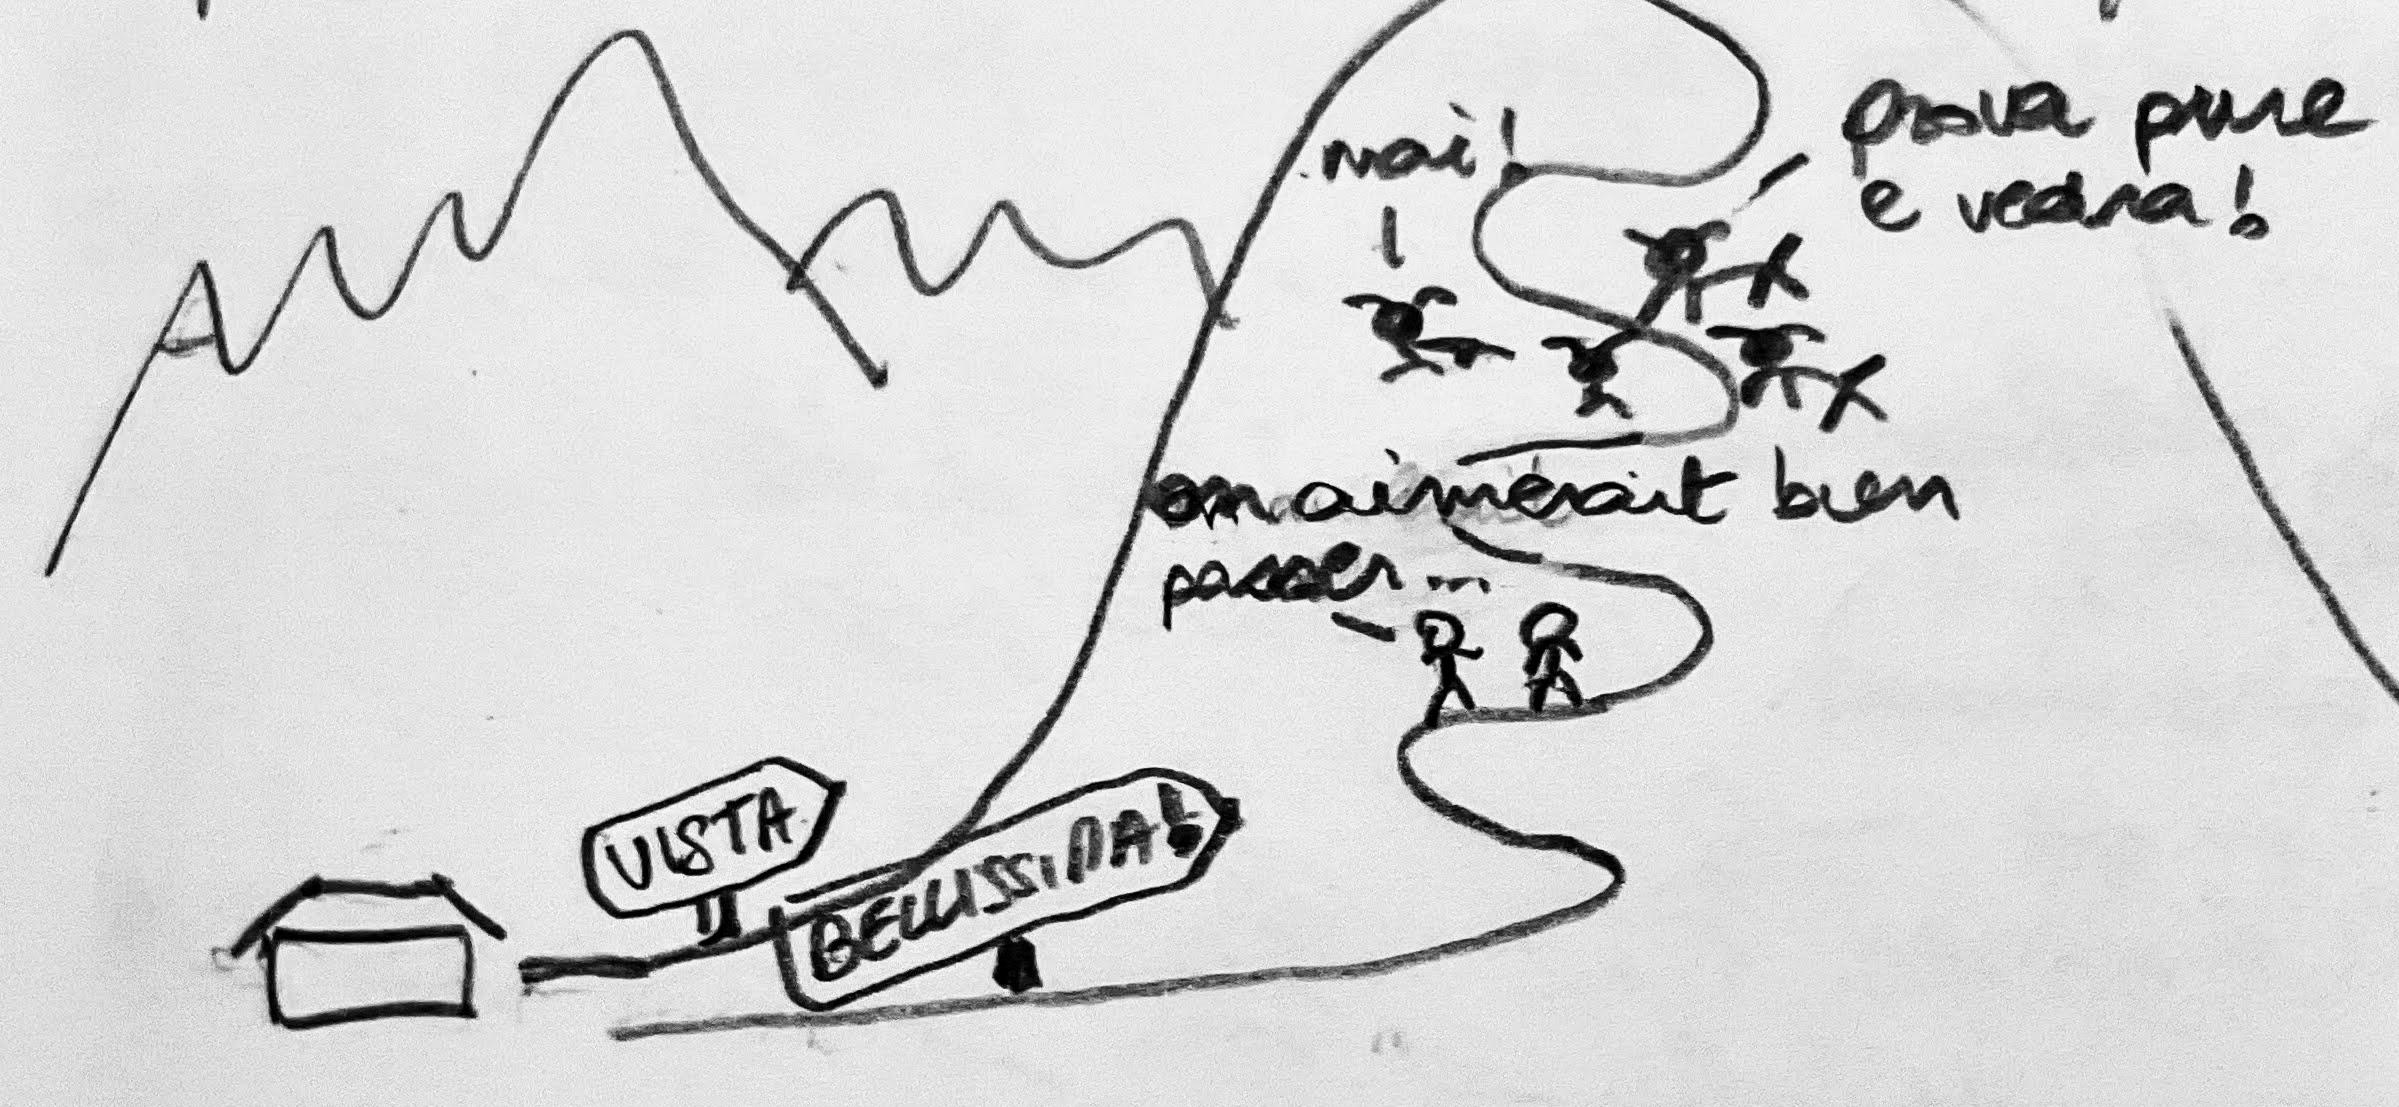 mai!
prova pure
e vedra!
on aimerait bien
passer...
VISTA
BELLISSIMA!